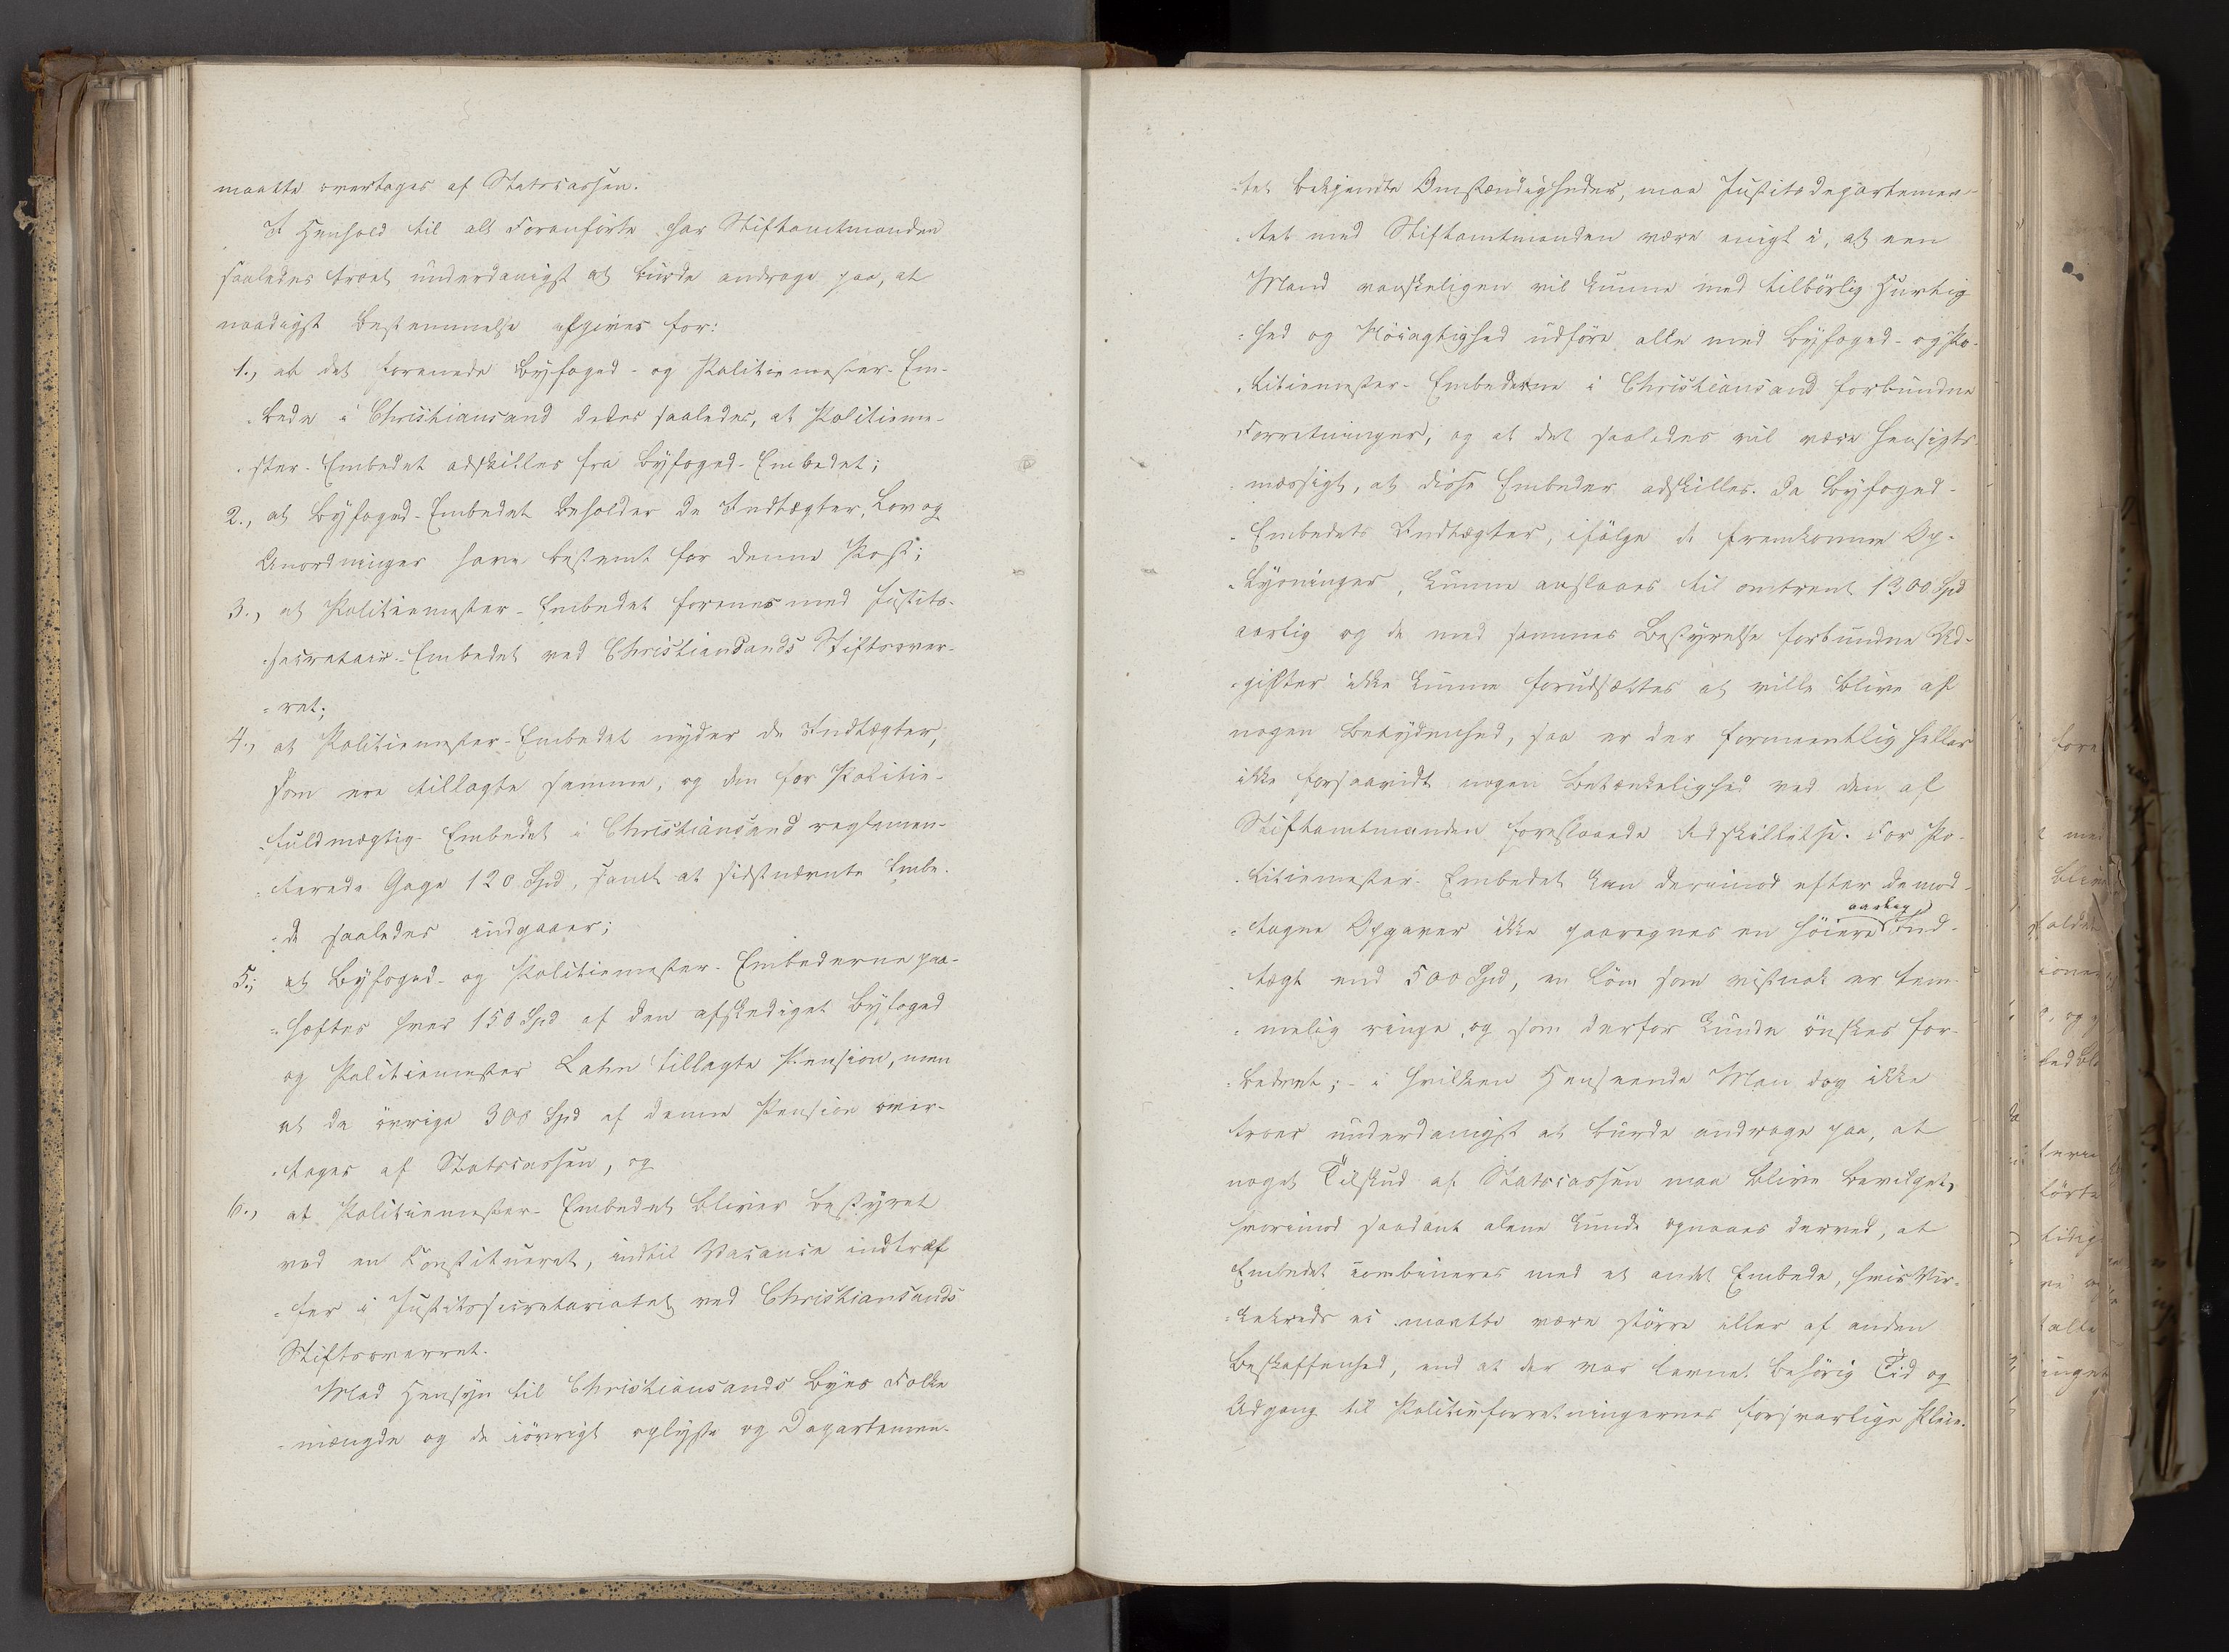 maatte overtages af Statscassen.
I Henhold til alt Foranførte har Stiftamtmanden
saaledes troet underdanigst at burde andrage paa, at
naadigst Bestemmelse afgives for:
1., at det forenede Byfoged- og Politiemester-Em-
-bede i Christiansand deles saaledes, at Politieme-
-ster-Embedet adskilles fra Byfoged-Embedet;
2., at Byfoged-Embedet beholder de Indtægter, Lov og
Anordninger have bestemt for denne Post;
3., at Politiemester-Embedet forenes med Justits-
-secretair-Embedet ved Christiansands Stiftsover-
=ret;
4., at Politiemester-Embedet nyder de Indtægter,
som ere tillagte samme, og den for Politie-
-fuldmægtig-Embedet i Christiansand reglemen-
-terede Gage 120 Spd, samt at sidstnævnte Embe-
-de saaledes indgaaer;
5., at Byfoged- og Politiemester-Embederne paa-
=hæftes hver 150 Spd af den afskediget Byfoged
og Politiemester Lahn tillagte Pension, men
at de øvrige 300 Spd af denne Pension over-
-tages af Statscassen, og
6., at Politiemester-Embedet bliver bestyret
ved en Constitueret, indtil Vacance indtræf
-fer i Justitssecretariatet ved Christiansands
Stiftsoverret.
Med Hensyn til Christiansands Byes Folke
-mængde og de iøvrigt oplyste og Departemen-
-tet bekjendte Omstændigheder, maa Justitsdepartemen-
-tet med Stiftamtmanden være enigt i, at een
Mand vanskeligen vil kunne med tilbørlig Hurtig
=hed og Nøiagtighed udføre alle med Byfoged- og Po-
-litiemester-Embederne i Christiansand forbundne
Forretninger, og at det saaledes vil være hensigts-
-mæssigt, at disse Embeder adskilles. Da Byfoged-
-Embedets Indtægter, ifølge de fremkomne Op-
-lysninger, kunne anslaaes til omtrent 1300 Spd
aarlig og de med sammes Bestyrelse forbundne Ud-
-gifter ikke kunne forudsættes at ville blive af
nogen Betydenhed, saa er der formeentlig heller
ikke forsaavidt nogen Betænkelighed ved den af
Stiftamtmanden foreslaaede Adskillelse. For Po-
-litiemester-Embedet kan derimod efter de mod-
aarlig
-tagne Opgaver ikke paaregnes en høiere Ind-
-tægt end 500 Spd, en Løn som vistnok er tem-
-melig ringe, og som derfor kunde ønskes for-
-bedret; - i hvilken Henseende Man dog ikke
troer underdanigst at burde andrage paa, at
noget Tilskud af Statscassen maa blive bevilget,
hvorimod saadant alene kunde opnaaes derved, at
Embedet combineres med et andet Embede, hvis Vir-
-kekreds ei maatte være større eller af anden
Beskaffenhed, end at der var levnet behørig Tid og
Adgang til Politieforretningernes forsvarlige Pleie.